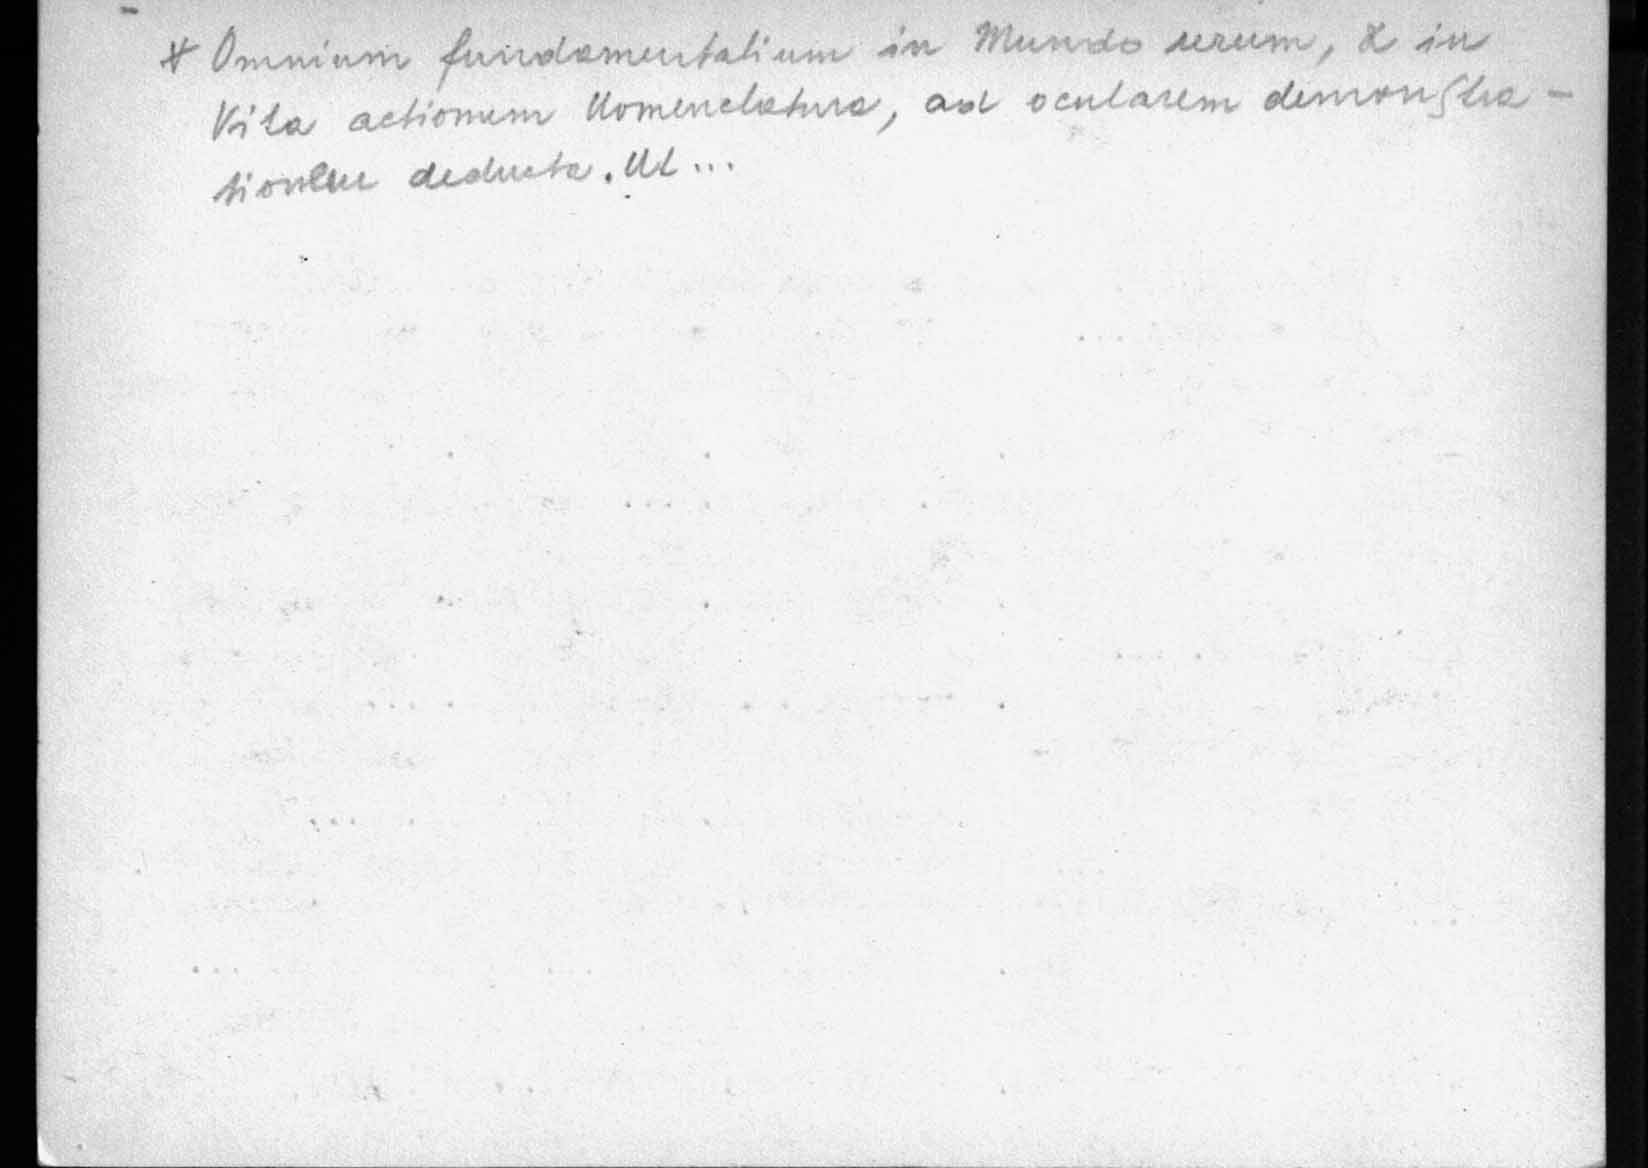 * Omnium fundamentalium in Mundo rerum, & in
Vita actionum Nomenclatura, ad ocularem demonſtra-
tionem deducta. Ut ...